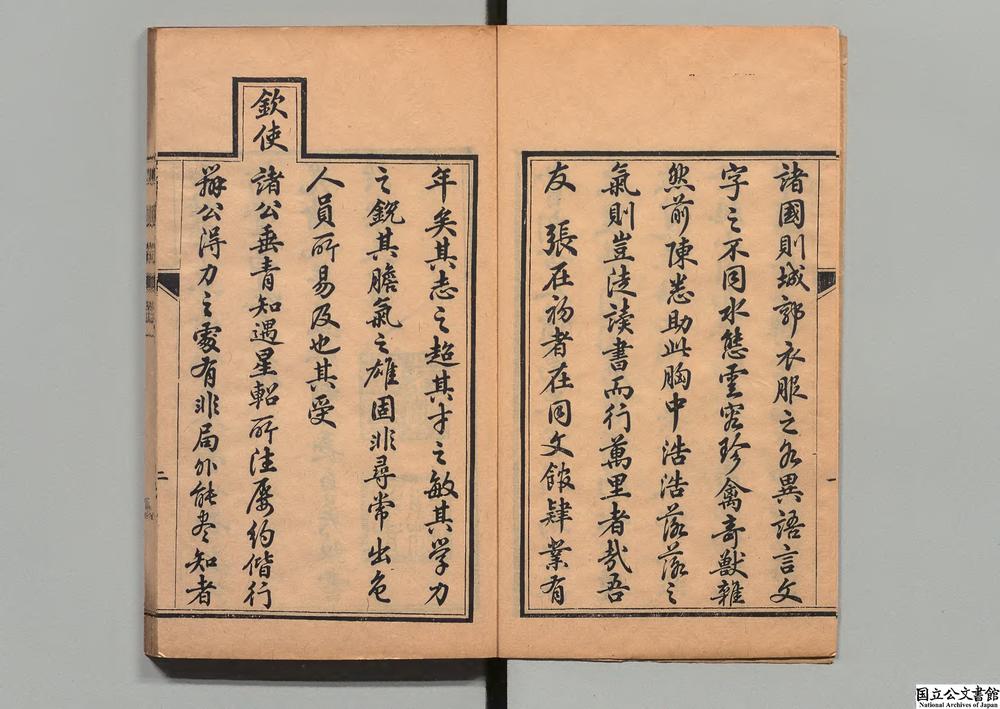 諸國則城郭衣服之各異語言文
字之不同水態雲容珍禽奇獸雜
然前陳悉助此胸中浩浩落落之
氣則豈徒讀書而行萬里者哉吾
友 張在初者在同文館肄業有
年矣其志之超其才之敏其學力
之銳其膽氣之雄固非尋常出色
人員所易及也其受
欽使諸公垂青知遇星軺所注屢約偕行
務公得力之處有非局外能盡知者
一
二
国立公文書館
National Archives of Japan